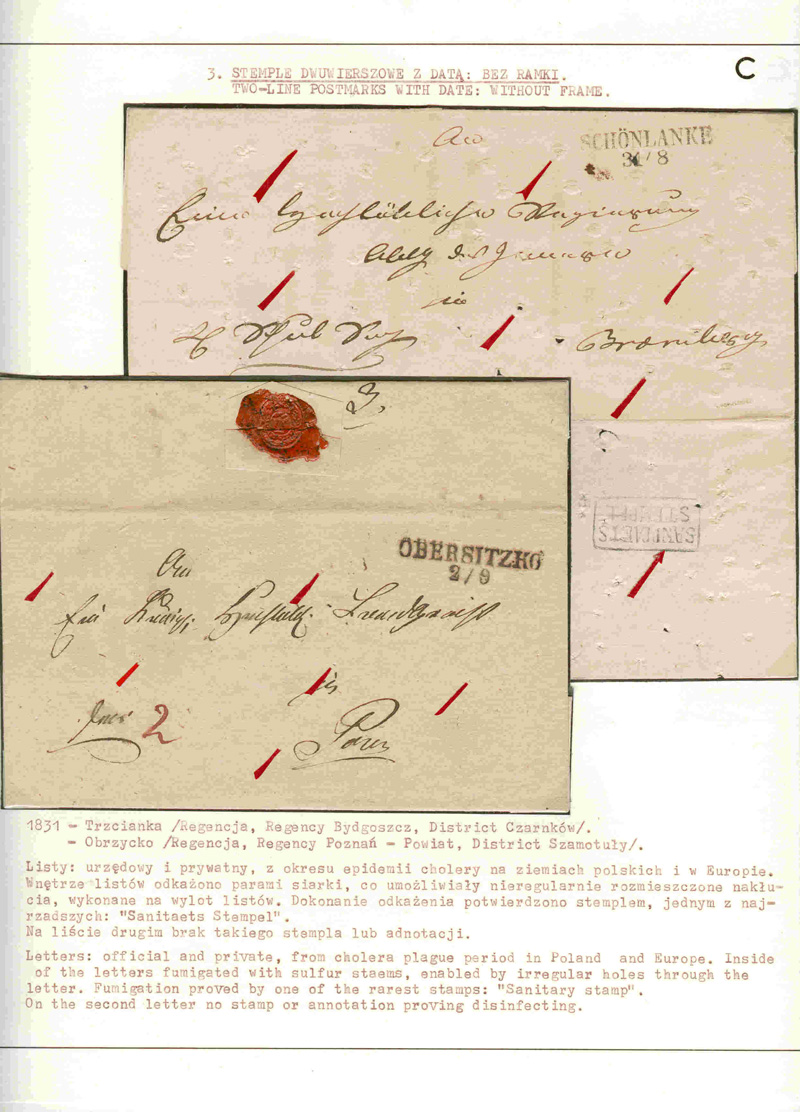 C
3. STEMPLE DWUWIERSZOWE Z DATĄ: BEZ RAMKI.
TWO-LINE POSTMARKS WITH DATE: WITHOUT FRAME.
SCHÖNLANKE
31/8
An
Eine Regierung
des Innern
in
Bromberg
SANITAETS
STEMPEL
3.
OBERSITZKO
2/9
An
Ein Landgericht
in
2
Posen
1831 - Trzcianka /Regencja, Regency Bydgoszcz, District Czarnków/.
- Obrzycko /Regencja, Regency Poznań - Powiat, District Szamotuły/.
Listy: urzędowy i prywatny, z okresu epidemii cholery na ziemiach polskich i w Europie.
Wnętrze listów odkażono parami siarki, co umożliwiały nieregularnie rozmieszczone nakłu-
cia, wykonane na wylot listów. Dokonanie odkażenia potwierdzono stemplem, jednym z naj-
rzadszych: "Sanitaets Stempel".
Na liście drugim brak takiego stempla lub adnotacji.
Letters: official and private, from cholera plague period in Poland and Europe. Inside
of the letters fumigated with sulfur staems, enabled by irregular holes through the
letter. Fumigation proved by one of the rarest stamps: "Sanitary stamp".
On the second letter no stamp or annotation proving disinfecting.